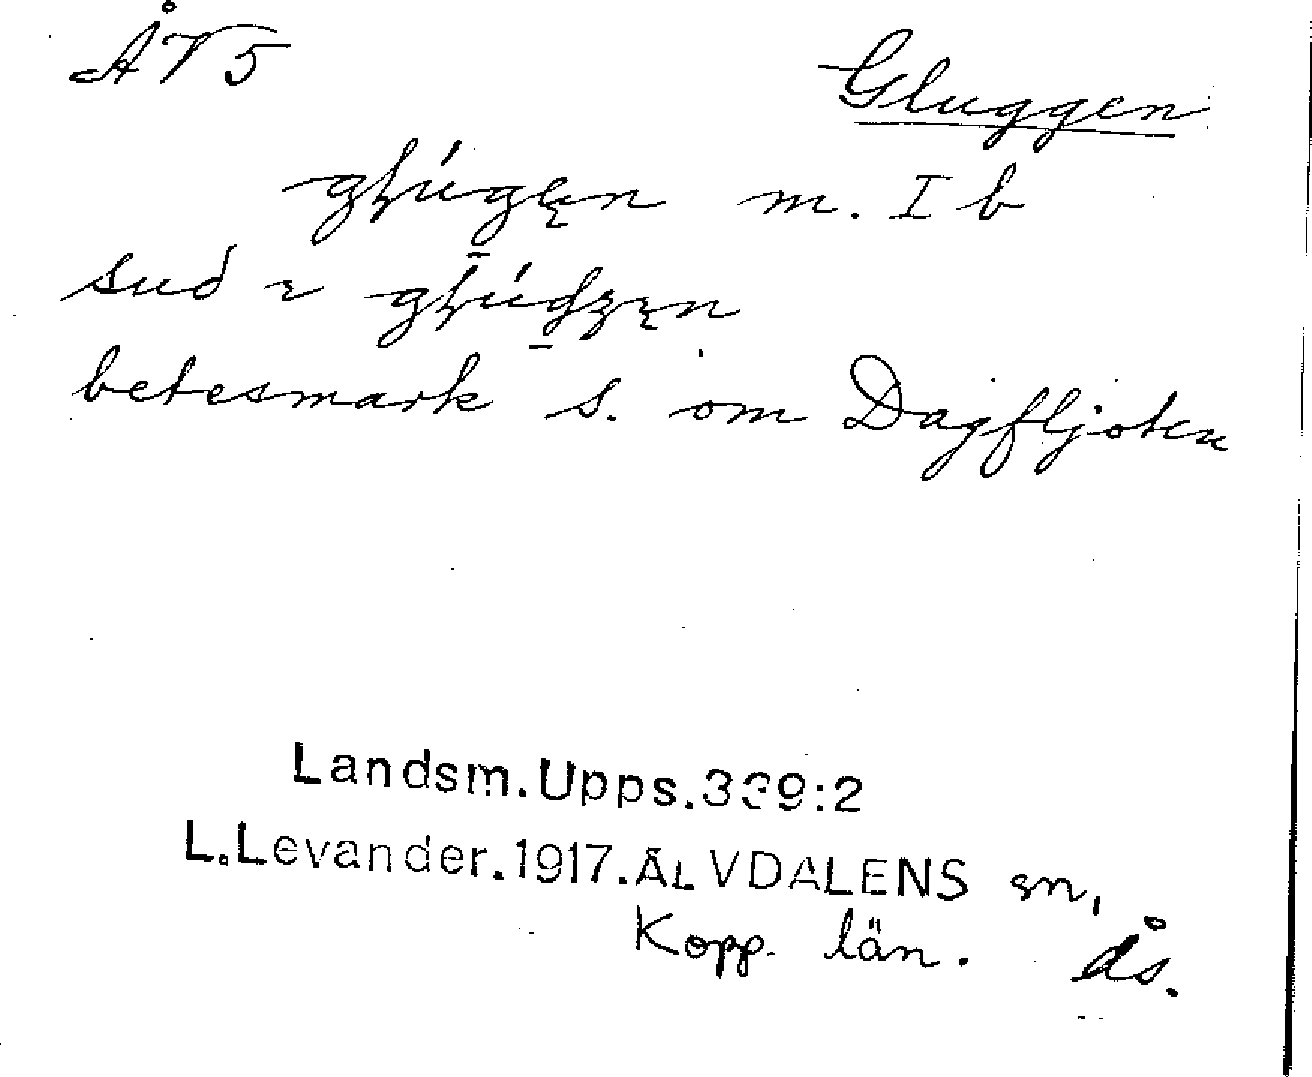 ÅV5
Gluggen
m. I b
betesmark s. om Dagfljoten
Landsm.Upps.339:2
L.Levander.1917.ÄLVDALENS sn,
Kopp. län. ås.